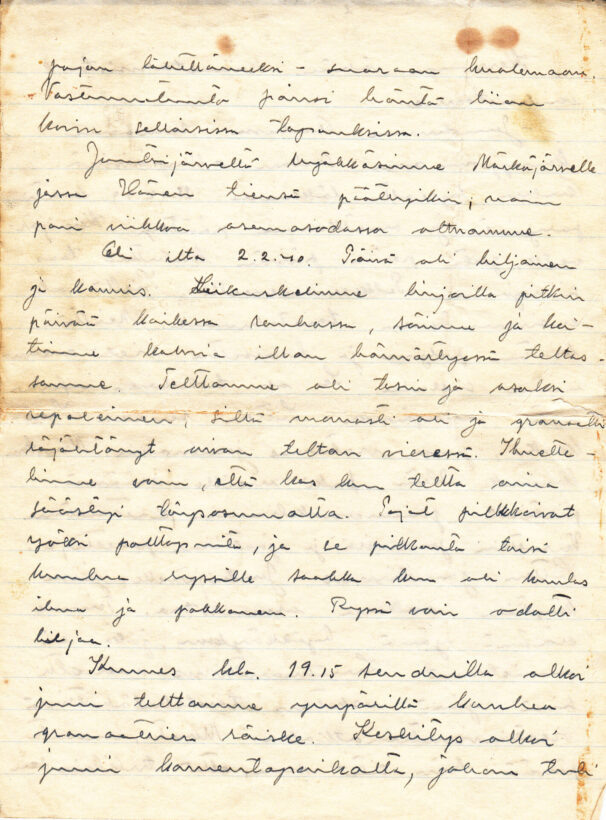 pojan lähettämiseksi - suoraan kuolemaan.
Vastuuntunto painoi häntä liian
kovin sellaisissa tapauksissa.
Juntsijärveltä hyökkäsimme Märkäjärvelle
jossa Hänen tiensä päättyikin, vain
pari viikkoa asemasodassa oltuamme.
Oli ilta 2.2.40. Päivä oli hiljainen
ja kaunis. Liikuskelimme linjoilla pitkin
päivää kaikessa rauhassa, söimme ja kei-
timme kahvia illan hämärtyessä teltas-
samme. Telttamme oli tosin ja osaksi
repaleinen, sillä monasti oli jo granaatti
räjähtänyt aivan teltan vieressä. Ihmette-
limme vain, että kas kun teltta aina
säästyi täysosumatta. Pojat pilkkoivat
yöksi polttopuita, ja se pilkonta taisi
kuulua ryssille saakka kun oli kuulas
ilma ja pakkanen. Ryssä vain odotti
hiljaa.
Kunnes klo. 19.15 seuduilla alkoi
juuri telttamme ympärillä kauhea
granaattien räiske. Keskitys alkoi
juuri komentopaikalta, johon tuli